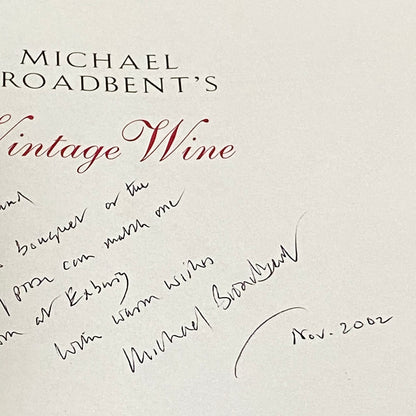 MICHAEL
ROADBENT'S
Vintage Wine
bouquet or the
can match one
at Exbury
With warm wishes
Michael Broadbent
Nov. 2002